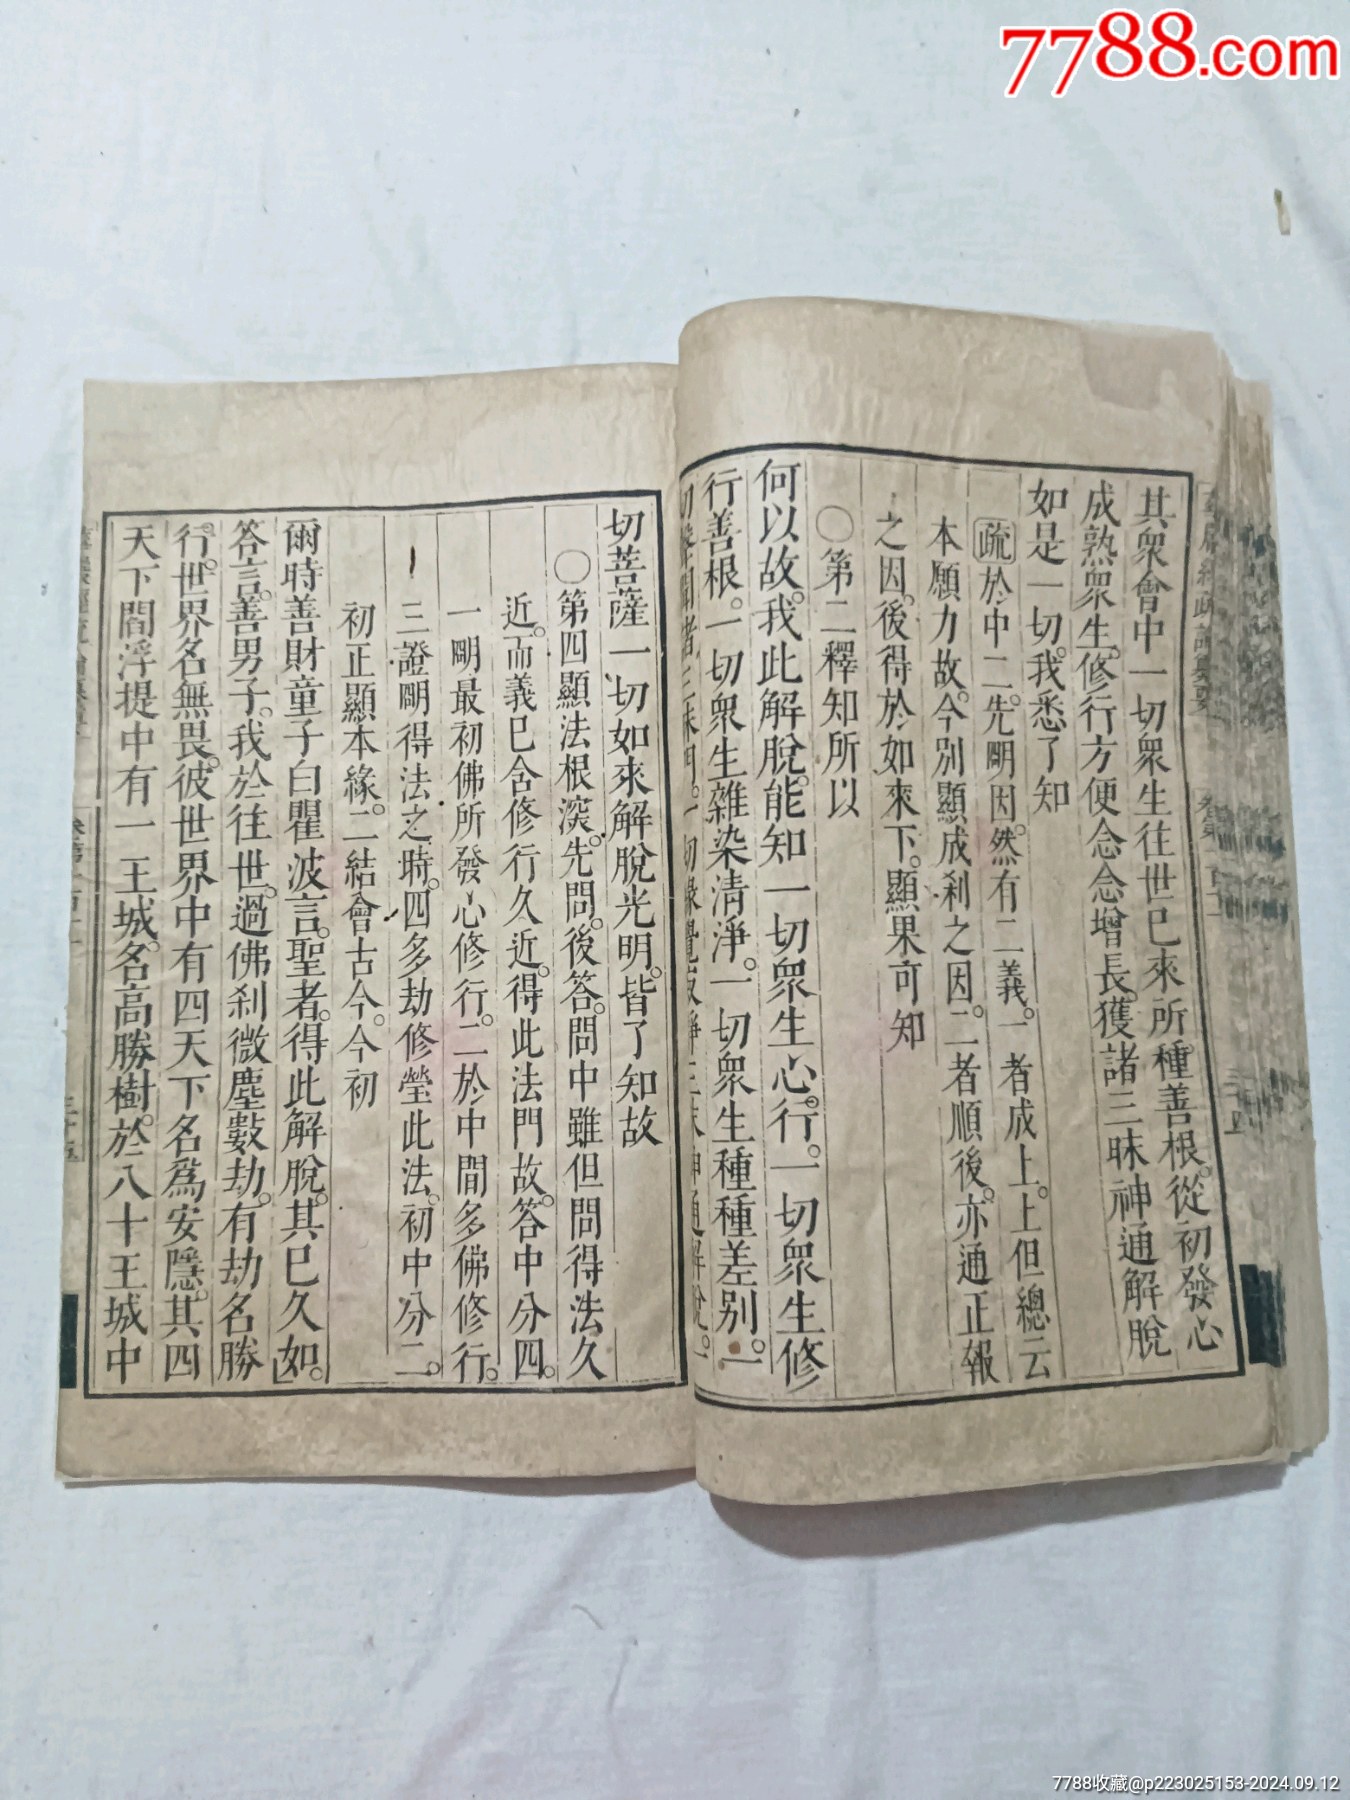 7788.com
其衆會中一切衆生往世巳來所種善根。從初發心
成熟衆生。修行方便念念增長。獲諸三昧神通解脫
如是一切。我悉了知
疏於中二。先明因。然有二義。一者成上。上但總云
本願力故。今別顯成刹之因。二者順後。亦通正報
之因。後得於如來下。顯果可知
○第二釋知所以
何以故。我此解脫。能知一切衆生心行。一切衆生修
行善根。一切衆生雜染清淨。一切衆生種種差別。一
切聲聞諸三昧門。一切緣覺寂靜三昧神通解脫。一
切菩薩一切如來解脫光明。皆了知故
○第四顯法根深。先問。後答。問中雖但問得法久
近。而義巳含修行久近。得此法門故。答中分四。
一明最初佛所發心修行。二於中間多佛修行。
三證明得法之時。四多劫修瑩此法。初中分二。
初正顯本緣。二結會古今。今初
爾時善財童子白瞿波言。聖者。得此解脫。其巳久如。
答言。善男子。我於往世。過佛刹微塵數劫。有劫名勝
行。世界名無畏。彼世界中有四天下名爲安隱。其四
天下閻浮提中有一王城。名高勝樹。於八十王城中
7788收藏@p223025153-2024.09.12